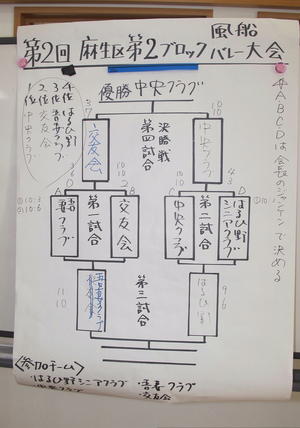 第2回 麻生区第2ブロック 風船バレー大会
優勝 中央クラブ
決勝戦
第四試合
交友会
中央クラブ
1位 中央クラブ
2位 交友会
3位 吾妻クラブ
4位 はるひ野
※ABCDは会長のジャンケンで決める
A
B
C
D
吾妻クラブ
第一試合
交友会
中央クラブ
第二試合
はるひ野シニアクラブ
第三試合
はるひ野
11
10
9
6
〈参加チーム〉
・はるひ野シニアクラブ
・吾妻クラブ
・中央クラブ
・交友会